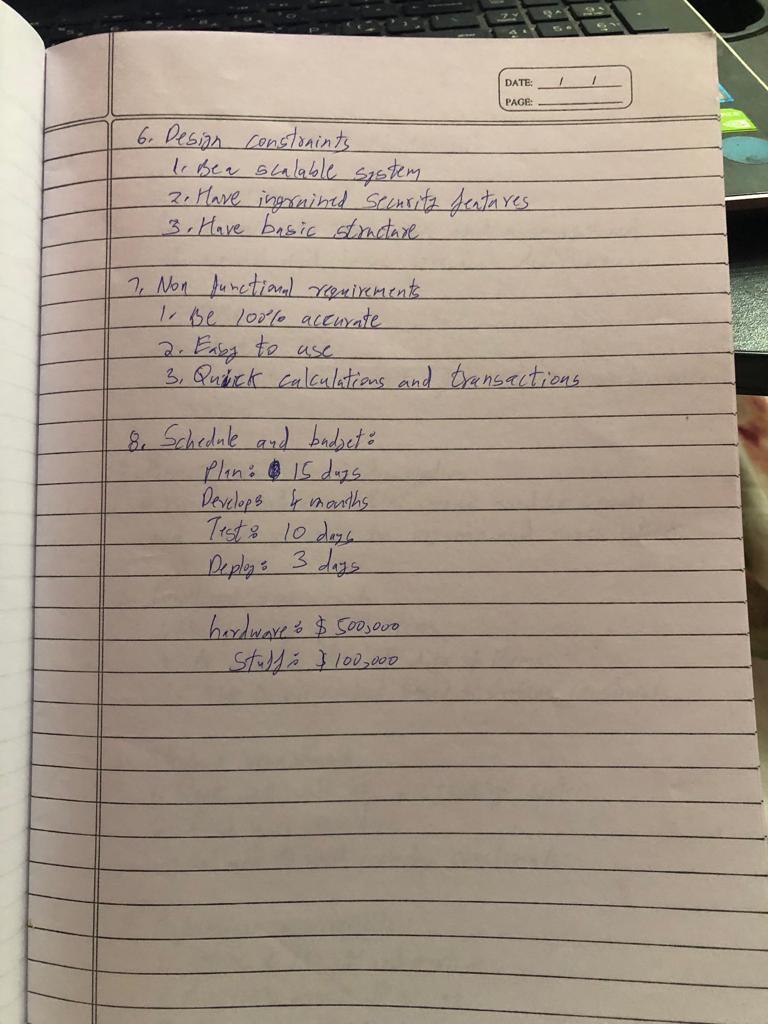 DATE: / /
PAGE:
6. Design constraints
1. Be a scalable system
2. Have ingrained security features
3. Have basic structure
7. Non functional requirements
1. Be 100% accurate
2. Easy to use
3. Quick calculations and transactions
8. Schedule and budget:
Plan: 15 days
Develop: 4 months
Test: 10 days
Deploy: 3 days
hardware: $ 500,000
Stuff: $ 100,000